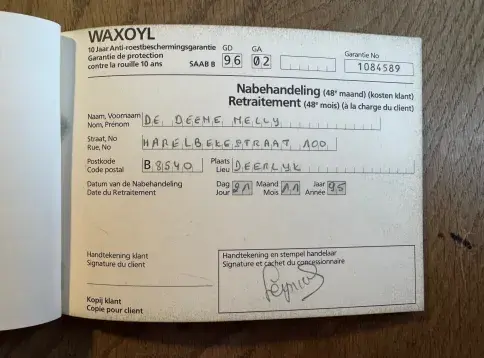 WAXOYL
10 Jaar Anti-roestbeschermingsgarantie GD GA
Garantie de protection
contre la rouille 10 ans SAAB B 96 02 Garantie No
1084589
Nabehandeling (48e maand) (kosten klant)
Retraitement (48e mois) (à la charge du client)
Naam, Voornaam
Nom, Prénom DE DEENE NELLY
Straat, No
Rue, No HARELBEKESTRAAT 100
Postkode
Code postal B 8540 Plaats
Lieu DEERLYK
Datum van de Nabehandeling Dag Maand Jaar
Date du Retraitement Jour 21 Mois 11 Année 95
Handtekening klant
Signature du client
Handtekening en stempel handelaar
Signature et cachet du concessionnaire
Kopij klant
Copie pour client